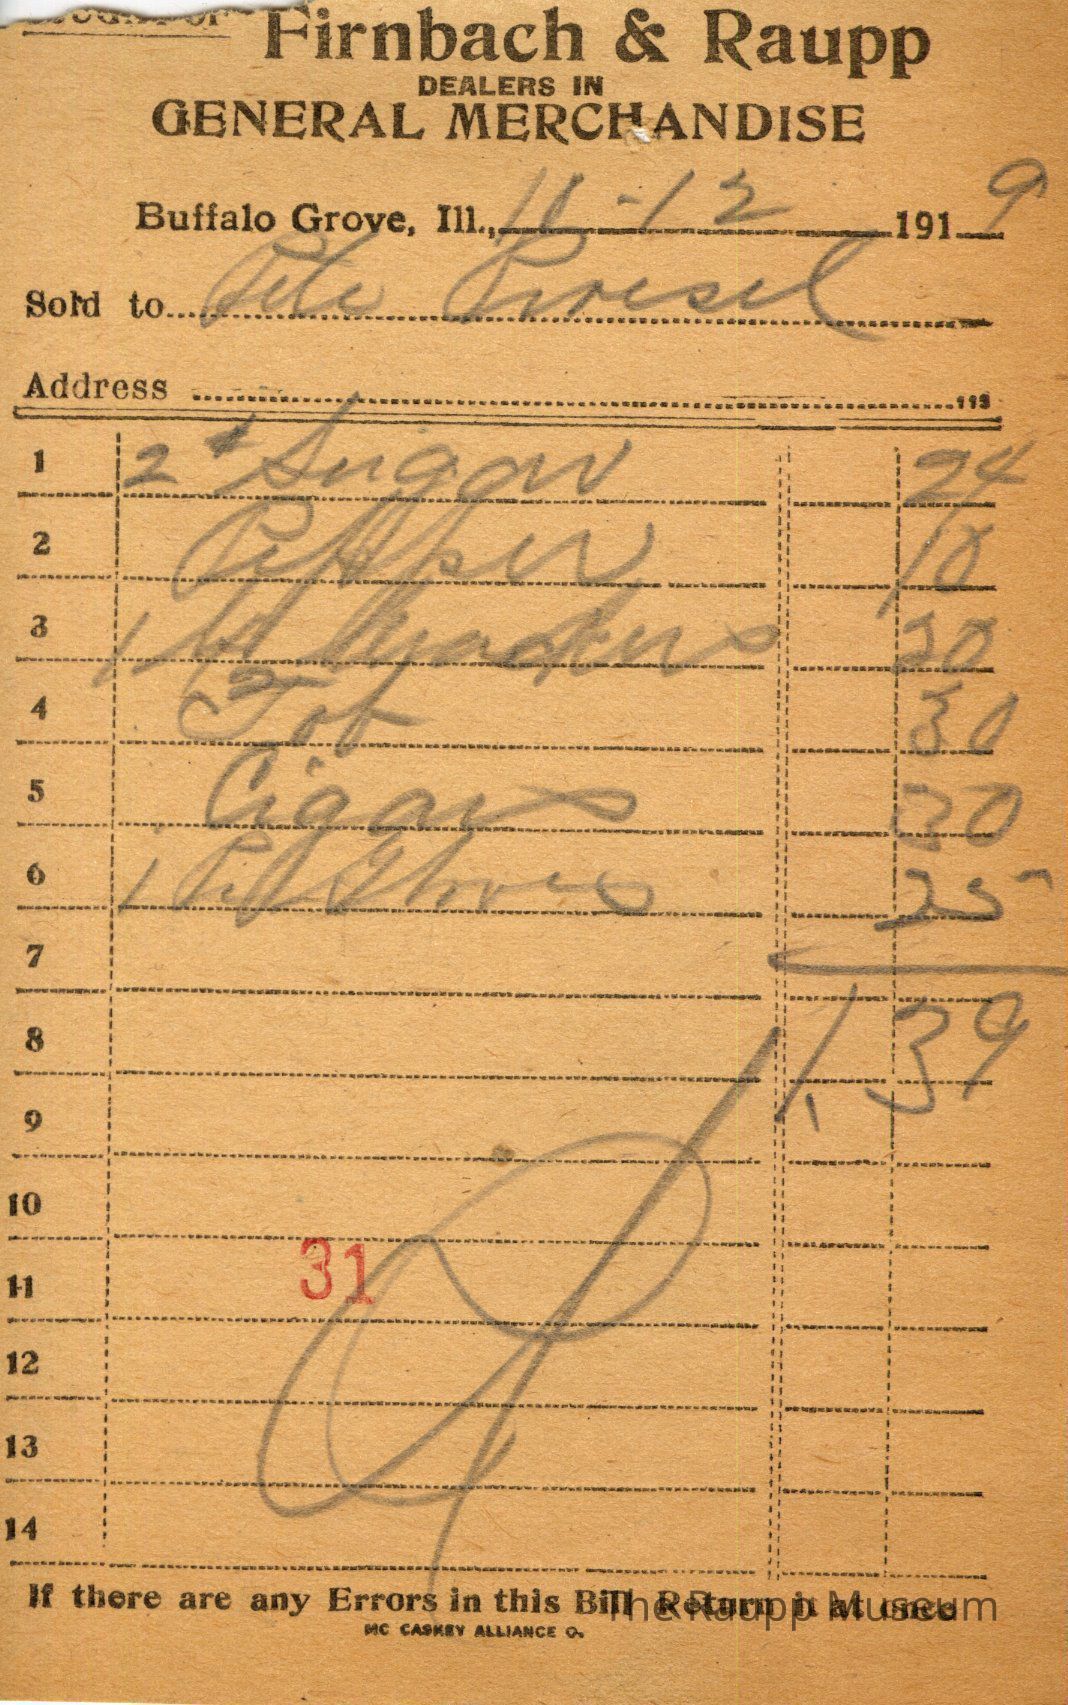 Firnbach & Raupp
DEALERS IN
GENERAL MERCHANDISE
Buffalo Grove, Ill., 10-12 1919
Sold to Pete
Address
1 2 # Sugar 24
2 Pepper 10
3 1 20
4 Tob 30
5 Cigars 30
6 1 Pr Gloves 25
7
8 1.39
9
10
31
11
12
13
14
If there are any Errors in this Bill Return it at once
The Raupp Museum
MC CASKEY ALLIANCE O.